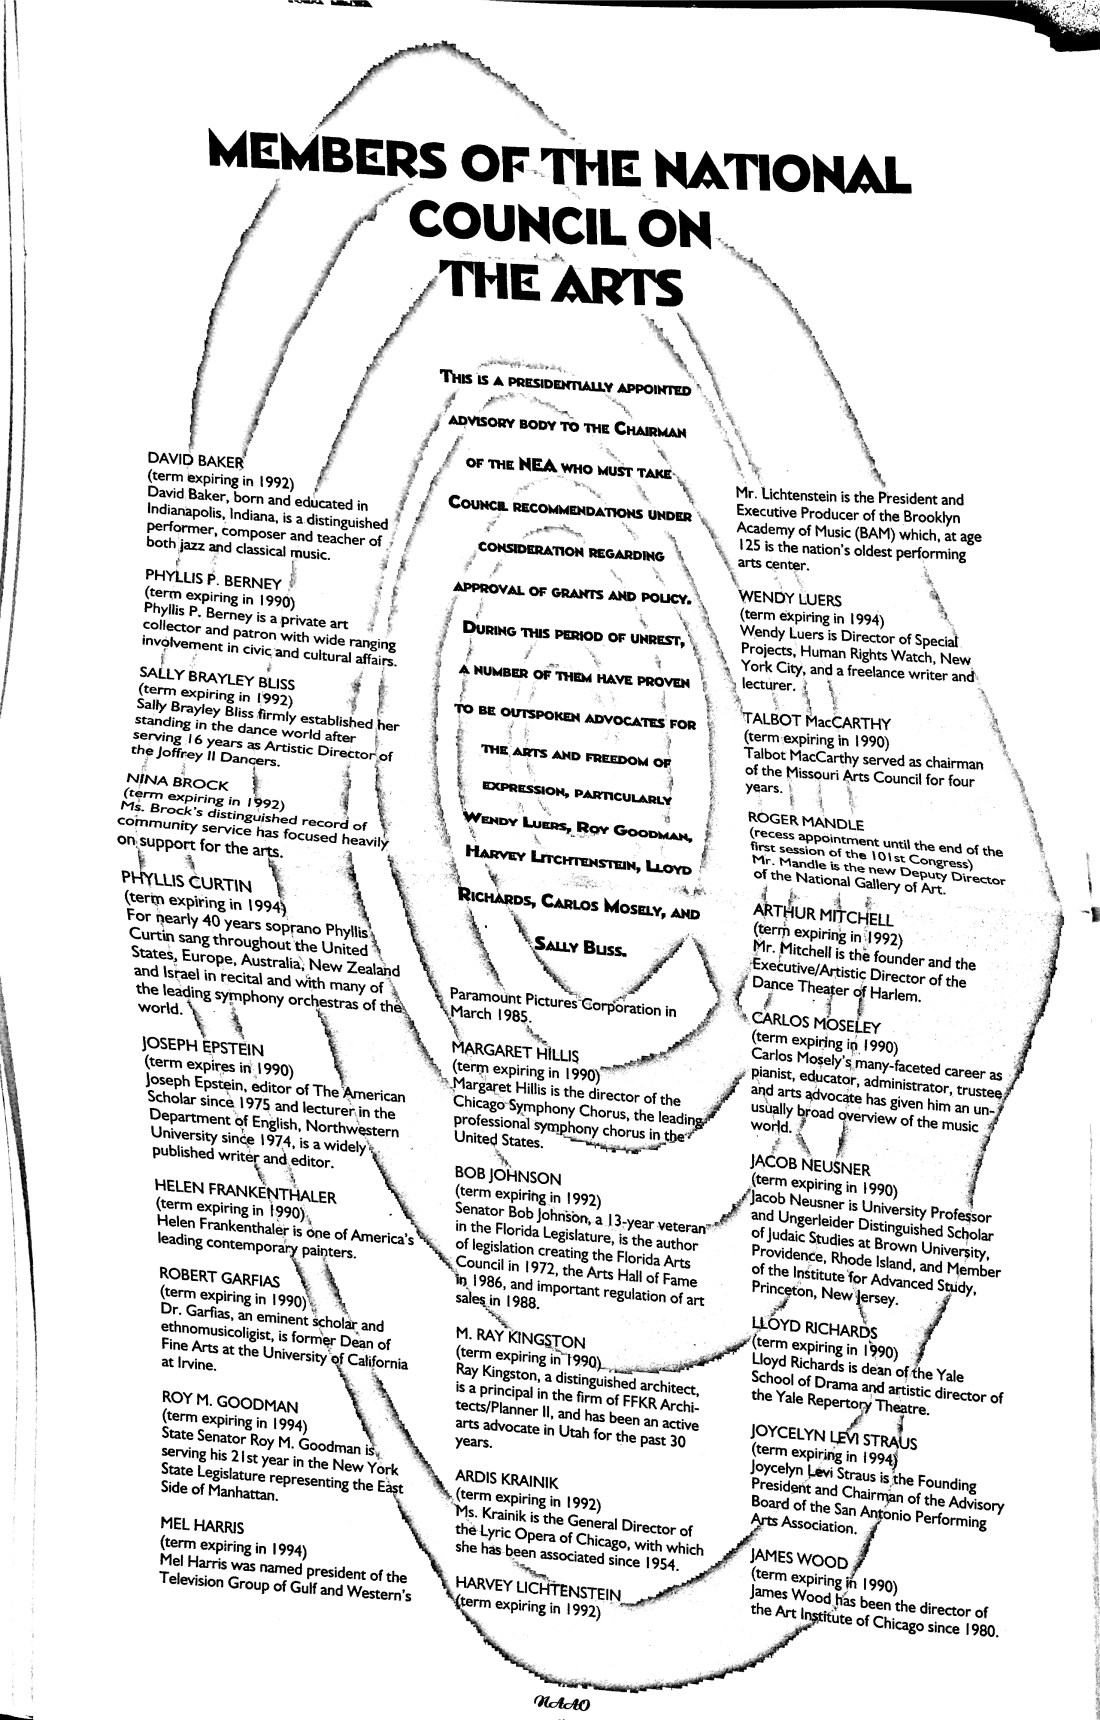 MEMBERS OF THE NATIONAL
COUNCIL ON
THE ARTS
THIS IS A PRESIDENTIALLY APPOINTED
ADVISORY BODY TO THE CHAIRMAN
OF THE NEA WHO MUST TAKE
COUNCIL RECOMMENDATIONS UNDER
CONSIDERATION REGARDING
APPROVAL OF GRANTS AND POLICY.
DURING THIS PERIOD OF UNREST,
A NUMBER OF THEM HAVE PROVEN
TO BE OUTSPOKEN ADVOCATES FOR
THE ARTS AND FREEDOM OF
EXPRESSION, PARTICULARLY
WENDY LUERS, ROY GOODMAN,
HARVEY LITCHTENSTEIN, LLOYD
RICHARDS, CARLOS MOSELY, AND
SALLY BLISS.
DAVID BAKER
(term expiring in 1992)
David Baker, born and educated in
Indianapolis, Indiana, is a distinguished
performer, composer and teacher of
both jazz and classical music.
PHYLLIS P. BERNEY
(term expiring in 1990)
Phyllis P. Berney is a private art
collector and patron with wide ranging
involvement in civic and cultural affairs.
SALLY BRAYLEY BLISS
(term expiring in 1992)
Sally Brayley Bliss firmly established her
standing in the dance world after
serving 16 years as Artistic Director of
the Joffrey II Dancers.
NINA BROCK
(term expiring in 1992)
Ms. Brock's distinguished record of
community service has focused heavily
on support for the arts.
PHYLLIS CURTIN
(term expiring in 1994)
For nearly 40 years soprano Phyllis
Curtin sang throughout the United
States, Europe, Australia, New Zealand
and Israel in recital and with many of
the leading symphony orchestras of the
world.
JOSEPH EPSTEIN
(term expires in 1990)
Joseph Epstein, editor of The American
Scholar since 1975 and lecturer in the
Department of English, Northwestern
University since 1974, is a widely
published writer and editor.
HELEN FRANKENTHALER
(term expiring in 1990)
Helen Frankenthaler is one of America's
leading contemporary painters.
ROBERT GARFIAS
(term expiring in 1990)
Dr. Garfias, an eminent scholar and
ethnomusicoligist, is former Dean of
Fine Arts at the University of California
at Irvine.
ROY M. GOODMAN
(term expiring in 1994)
State Senator Roy M. Goodman is
serving his 21st year in the New York
State Legislature representing the East
Side of Manhattan.
MEL HARRIS
(term expiring in 1994)
Mel Harris was named president of the
Television Group of Gulf and Western's
Paramount Pictures Corporation in
March 1985.
MARGARET HILLIS
(term expiring in 1990)
Margaret Hillis is the director of the
Chicago Symphony Chorus, the leading
professional symphony chorus in the
United States.
BOB JOHNSON
(term expiring in 1992)
Senator Bob Johnson, a 13-year veteran
in the Florida Legislature, is the author
of legislation creating the Florida Arts
Council in 1972, the Arts Hall of Fame
in 1986, and important regulation of art
sales in 1988.
M. RAY KINGSTON
(term expiring in 1990)
Ray Kingston, a distinguished architect,
is a principal in the firm of FFKR Archi-
tects/Planner II, and has been an active
arts advocate in Utah for the past 30
years.
ARDIS KRAINIK
(term expiring in 1992)
Ms. Krainik is the General Director of
the Lyric Opera of Chicago, with which
she has been associated since 1954.
HARVEY LICHTENSTEIN
(term expiring in 1992)
Mr. Lichtenstein is the President and
Executive Producer of the Brooklyn
Academy of Music (BAM) which, at age
125 is the nation's oldest performing
arts center.
WENDY LUERS
(term expiring in 1994)
Wendy Luers is Director of Special
Projects, Human Rights Watch, New
York City, and a freelance writer and
lecturer.
TALBOT MacCARTHY
(term expiring in 1990)
Talbot MacCarthy served as chairman
of the Missouri Arts Council for four
years.
ROGER MANDLE
(recess appointment until the end of the
first session of the 101st Congress)
Mr. Mandle is the new Deputy Director
of the National Gallery of Art.
ARTHUR MITCHELL
(term expiring in 1992)
Mr. Mitchell is the founder and the
Executive/Artistic Director of the
Dance Theater of Harlem.
CARLOS MOSELEY
(term expiring in 1990)
Carlos Mosely's many-faceted career as
pianist, educator, administrator, trustee
and arts advocate has given him an un-
usually broad overview of the music
world.
JACOB NEUSNER
(term expiring in 1990)
Jacob Neusner is University Professor
and Ungerleider Distinguished Scholar
of Judaic Studies at Brown University,
Providence, Rhode Island, and Member
of the Institute for Advanced Study,
Princeton, New Jersey.
LLOYD RICHARDS
(term expiring in 1990)
Lloyd Richards is dean of the Yale
School of Drama and artistic director of
the Yale Repertory Theatre.
JOYCELYN LEVI STRAUS
(term expiring in 1994)
Joycelyn Levi Straus is the Founding
President and Chairman of the Advisory
Board of the San Antonio Performing
Arts Association.
JAMES WOOD
(term expiring in 1990)
James Wood has been the director of
the Art Institute of Chicago since 1980.
NAAO